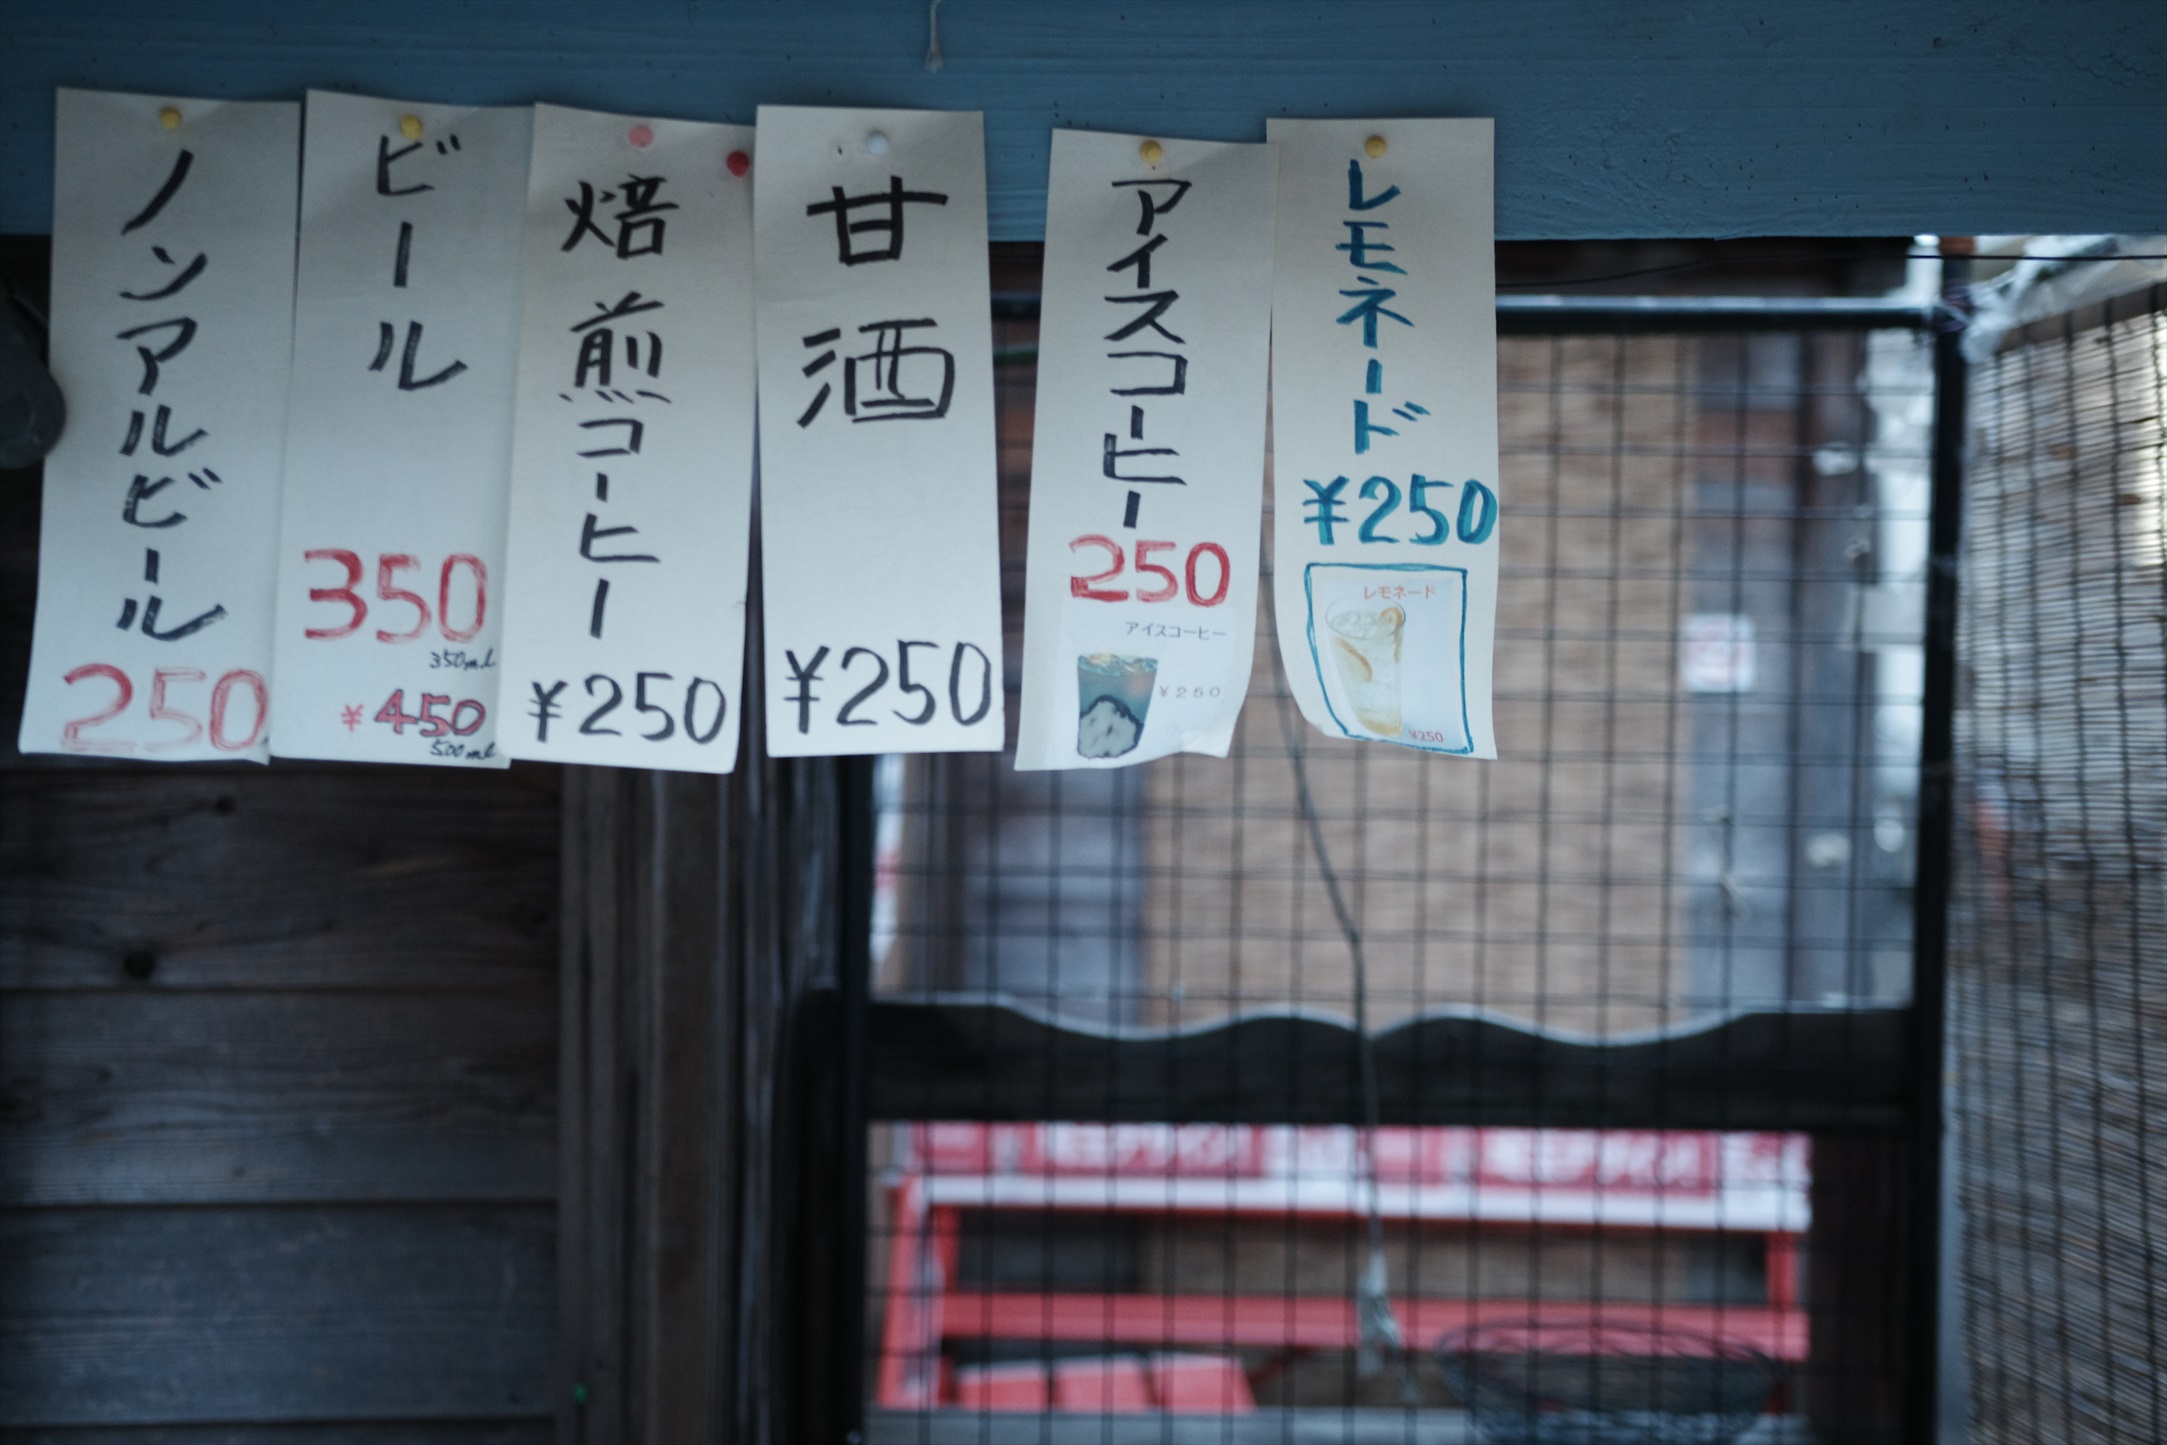 レモネード
¥250
レモネード
¥250
アイスコーヒー
250
アイスコーヒー
¥250
甘酒
¥250
焙煎コーヒー
¥250
ビール
350
350ml
¥450
500ml
ノンアルビール
250